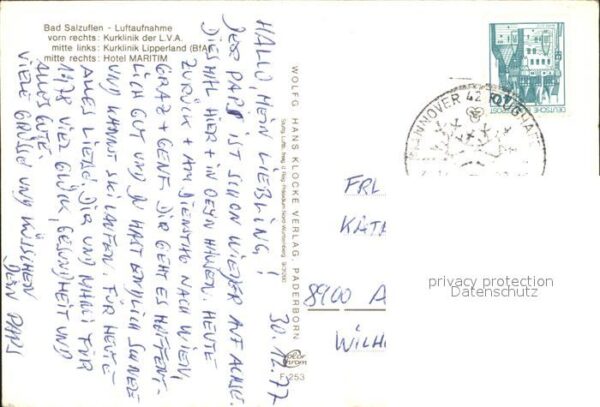 Bad Salzuflen - Luftaufnahme
vorn rechts: Kurklinik der L.V.A.
mitte links: Kurklinik Lipperland (BfA)
mitte rechts: Hotel MARITIM
30.12.77
HALLO, MEIN LIEBLING!
DER PAPS IST SCHON WIEDER AUF ACHSE.
DIESMAL HIER + IN OEYNHAUSEN. HEUTE
ZURÜCK + AM DIENSTAG NACH WIEN,
GRAZ + GENF. DIR GEHT ES HOFFENT-
LICH GUT UND DU HAST ENDLICH SCHNEE
UND KANNST SKILAUFEN. FÜR HEUTE
ALLES LIEBE DIR UND MAMI FÜR
1978 VIEL GLÜCK, GESUNDHEIT UND
ALLES GUTE.
VIELE GRÜSSE UND KÜSSCHEN
DEIN PAPS
WOLFG. HANS KLOCKE VERLAG PADERBORN
color
chrom
F 253
DEUTSCHE BUNDESPOST
HANNOVER 42 FLUGHAFEN
FRL
KATA
8900 A
WILH
privacy protection
Datenschutz